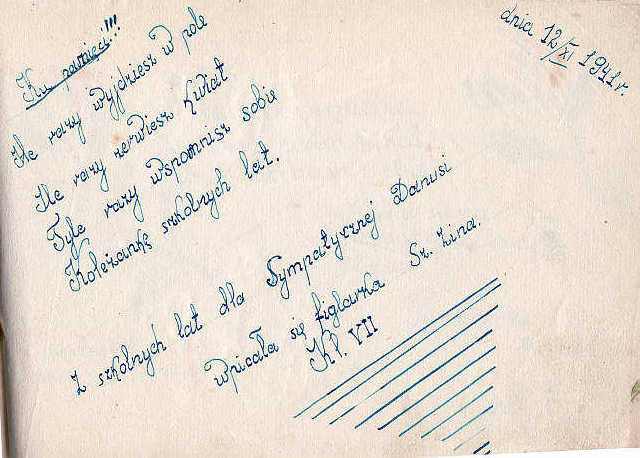 Ku pamięci!!!
dnia 12/XI 1941r.
Ile razy wyjdziesz w pole
Ile razy zerwiesz kwiat
Tyle razy wspomnisz sobie
Koleżankę szkolnych lat.
Z szkolnych lat dla Sympatycznej Danusi
wpisała się figlarka Sz. Zina.
Kl. VII